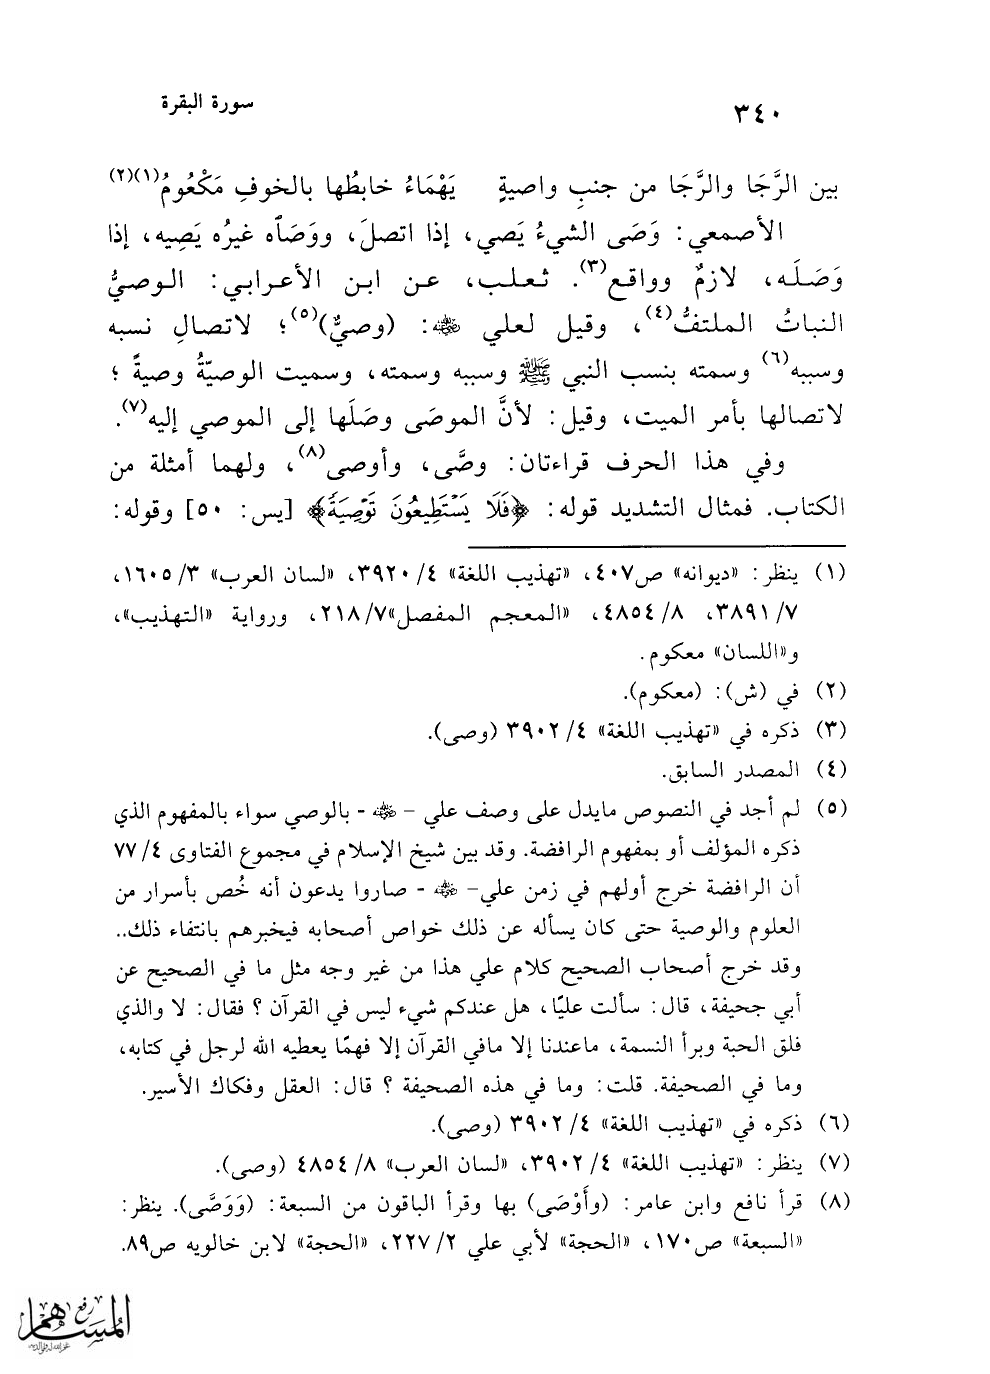 ٣٤٠ سورة البقرة
بين الرَّجَا والرَّجَا من جنبِ واصيةٍ يَهْمَاءُ خابطُها بالخوفِ مَكْعُومُ(١)(٢)
الأصمعي: وَصَى الشيءُ يَصي، إذا اتصلَ، ووَصَاه غيرُه يَصِيه، إذا
وَصَلَه، لازمٌ وواقع(٣). ثعلب، عن ابن الأعرابي: الوصيُّ
النباتُ الملتفُّ(٤)، وقيل لعلي رضي الله عنه: (وصيٌّ)(٥)؛ لاتصالِ نسبه
وسببه(٦) وسمته بنسب النبي ﷺ وسببه وسمته، وسميت الوصيّةُ وصيةً ؛
لاتصالها بأمر الميت، وقيل: لأنَّ الموصَى وصَلَها إلى الموصي إليه(٧).
وفي هذا الحرف قراءتان: وصَّى، وأوصى(٨)، ولهما أمثلة من
الكتاب. فمثال التشديد قوله: ﴿فَلَا يَسْتَطِيعُونَ تَوْصِيَةً﴾ [يس: ٥٠] وقوله:
(١) ينظر: «ديوانه» ص٤٠٧، «تهذيب اللغة» ٤/ ٣٩٢٠، «لسان العرب» ٣/ ١٦٠٥،
٧/ ٣٨٩١، ٨/ ٤٨٥٤، «المعجم المفصل»٧/ ٢١٨، ورواية «التهذيب»،
و«اللسان» معكوم.
(٢) في (ش): (معكوم).
(٣) ذكره في «تهذيب اللغة» ٤/ ٣٩٠٢ (وصى).
(٤) المصدر السابق.
(٥) لم أجد في النصوص مايدل على وصف علي - رضي الله عنه - بالوصي سواء بالمفهوم الذي
ذكره المؤلف أو بمفهوم الرافضة. وقد بين شيخ الإسلام في مجموع الفتاوى ٤/ ٧٧
أن الرافضة خرج أولهم في زمن علي- رضي الله عنه - صاروا يدعون أنه خُص بأسرار من
العلوم والوصية حتى كان يسأله عن ذلك خواص أصحابه فيخبرهم بانتفاء ذلك..
وقد خرج أصحاب الصحيح كلام علي هذا من غير وجه مثل ما في الصحيح عن
أبي جحيفة، قال: سألت عليًا، هل عندكم شيء ليس في القرآن ؟ فقال: لا والذي
فلق الحبة وبرأ النسمة، ماعندنا إلا مافي القرآن إلا فهمًا يعطيه الله لرجل في كتابه،
وما في الصحيفة. قلت: وما في هذه الصحيفة ؟ قال: العقل وفكاك الأسير.
(٦) ذكره في «تهذيب اللغة» ٤/ ٣٩٠٢ (وصى).
(٧) ينظر: «تهذيب اللغة» ٤/ ٣٩٠٢، «لسان العرب» ٨/ ٤٨٥٤ (وصى).
(٨) قرأ نافع وابن عامر: (وأَوْصَى) بها وقرأ الباقون من السبعة: (وَوَصَّى). ينظر:
«السبعة» ص١٧٠، «الحجة» لأبي علي ٢/ ٢٢٧، «الحجة» لابن خالويه ص٨٩.
رفع
المساهم